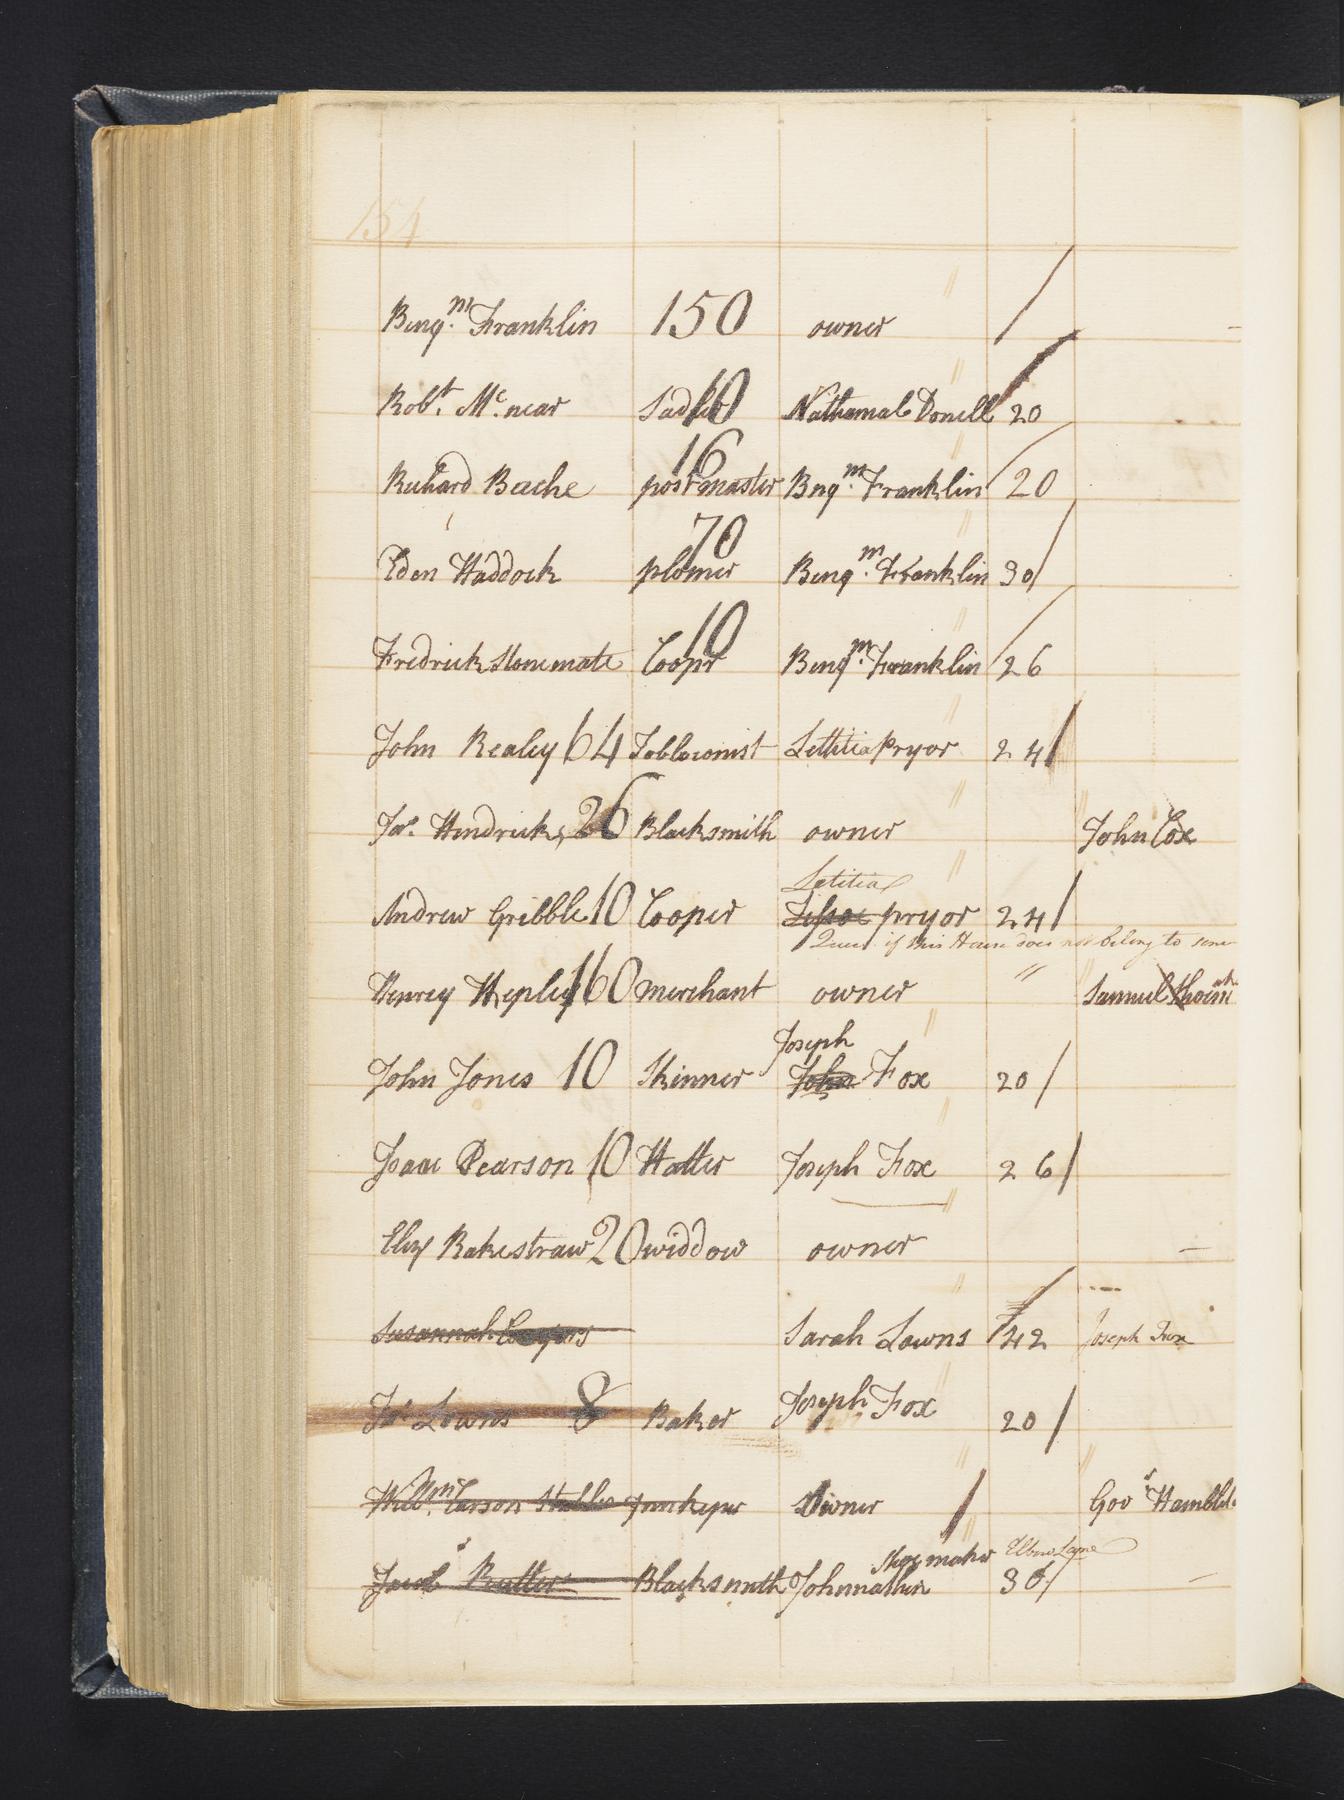 154
Benj.m Franklin 150 owner /
Robt. Mc.near Sadler 10 Nathanial Donell / 20
16
Richard Bache postmaster Benj.m Franklin / 20
70
Eden Haddock plomer Benj.m Franklin 30/
10
Fredrick Stonemate Coopr Benj.m Franklin / 26
John Realey 64 Toblowmist Letitia Pryor 24/
Jos. Hendricks 26 Blacksmith owner John Cox
Letitia
Andrew Gribble 10 Cooper pryor 24/
if this House does not belong to some
Henrey Hepley 160 merchant owner Samuel
Joseph
John Jones 10 Skinner John Fox 20/
Isaac Pearson 10 Hatter Joseph Fox 26/
Eliz Rakestraw 20 widdow owner
Susannah Sarah Lowns / 42 Joseph Fox
Jos. Lowns 8 Baker Joseph Fox 20/
Willm. Carson Innkeper Owner / Govr
Shoemaker Elbow Lane
Jacob Rutter Blacksmith Johnnathen 30/